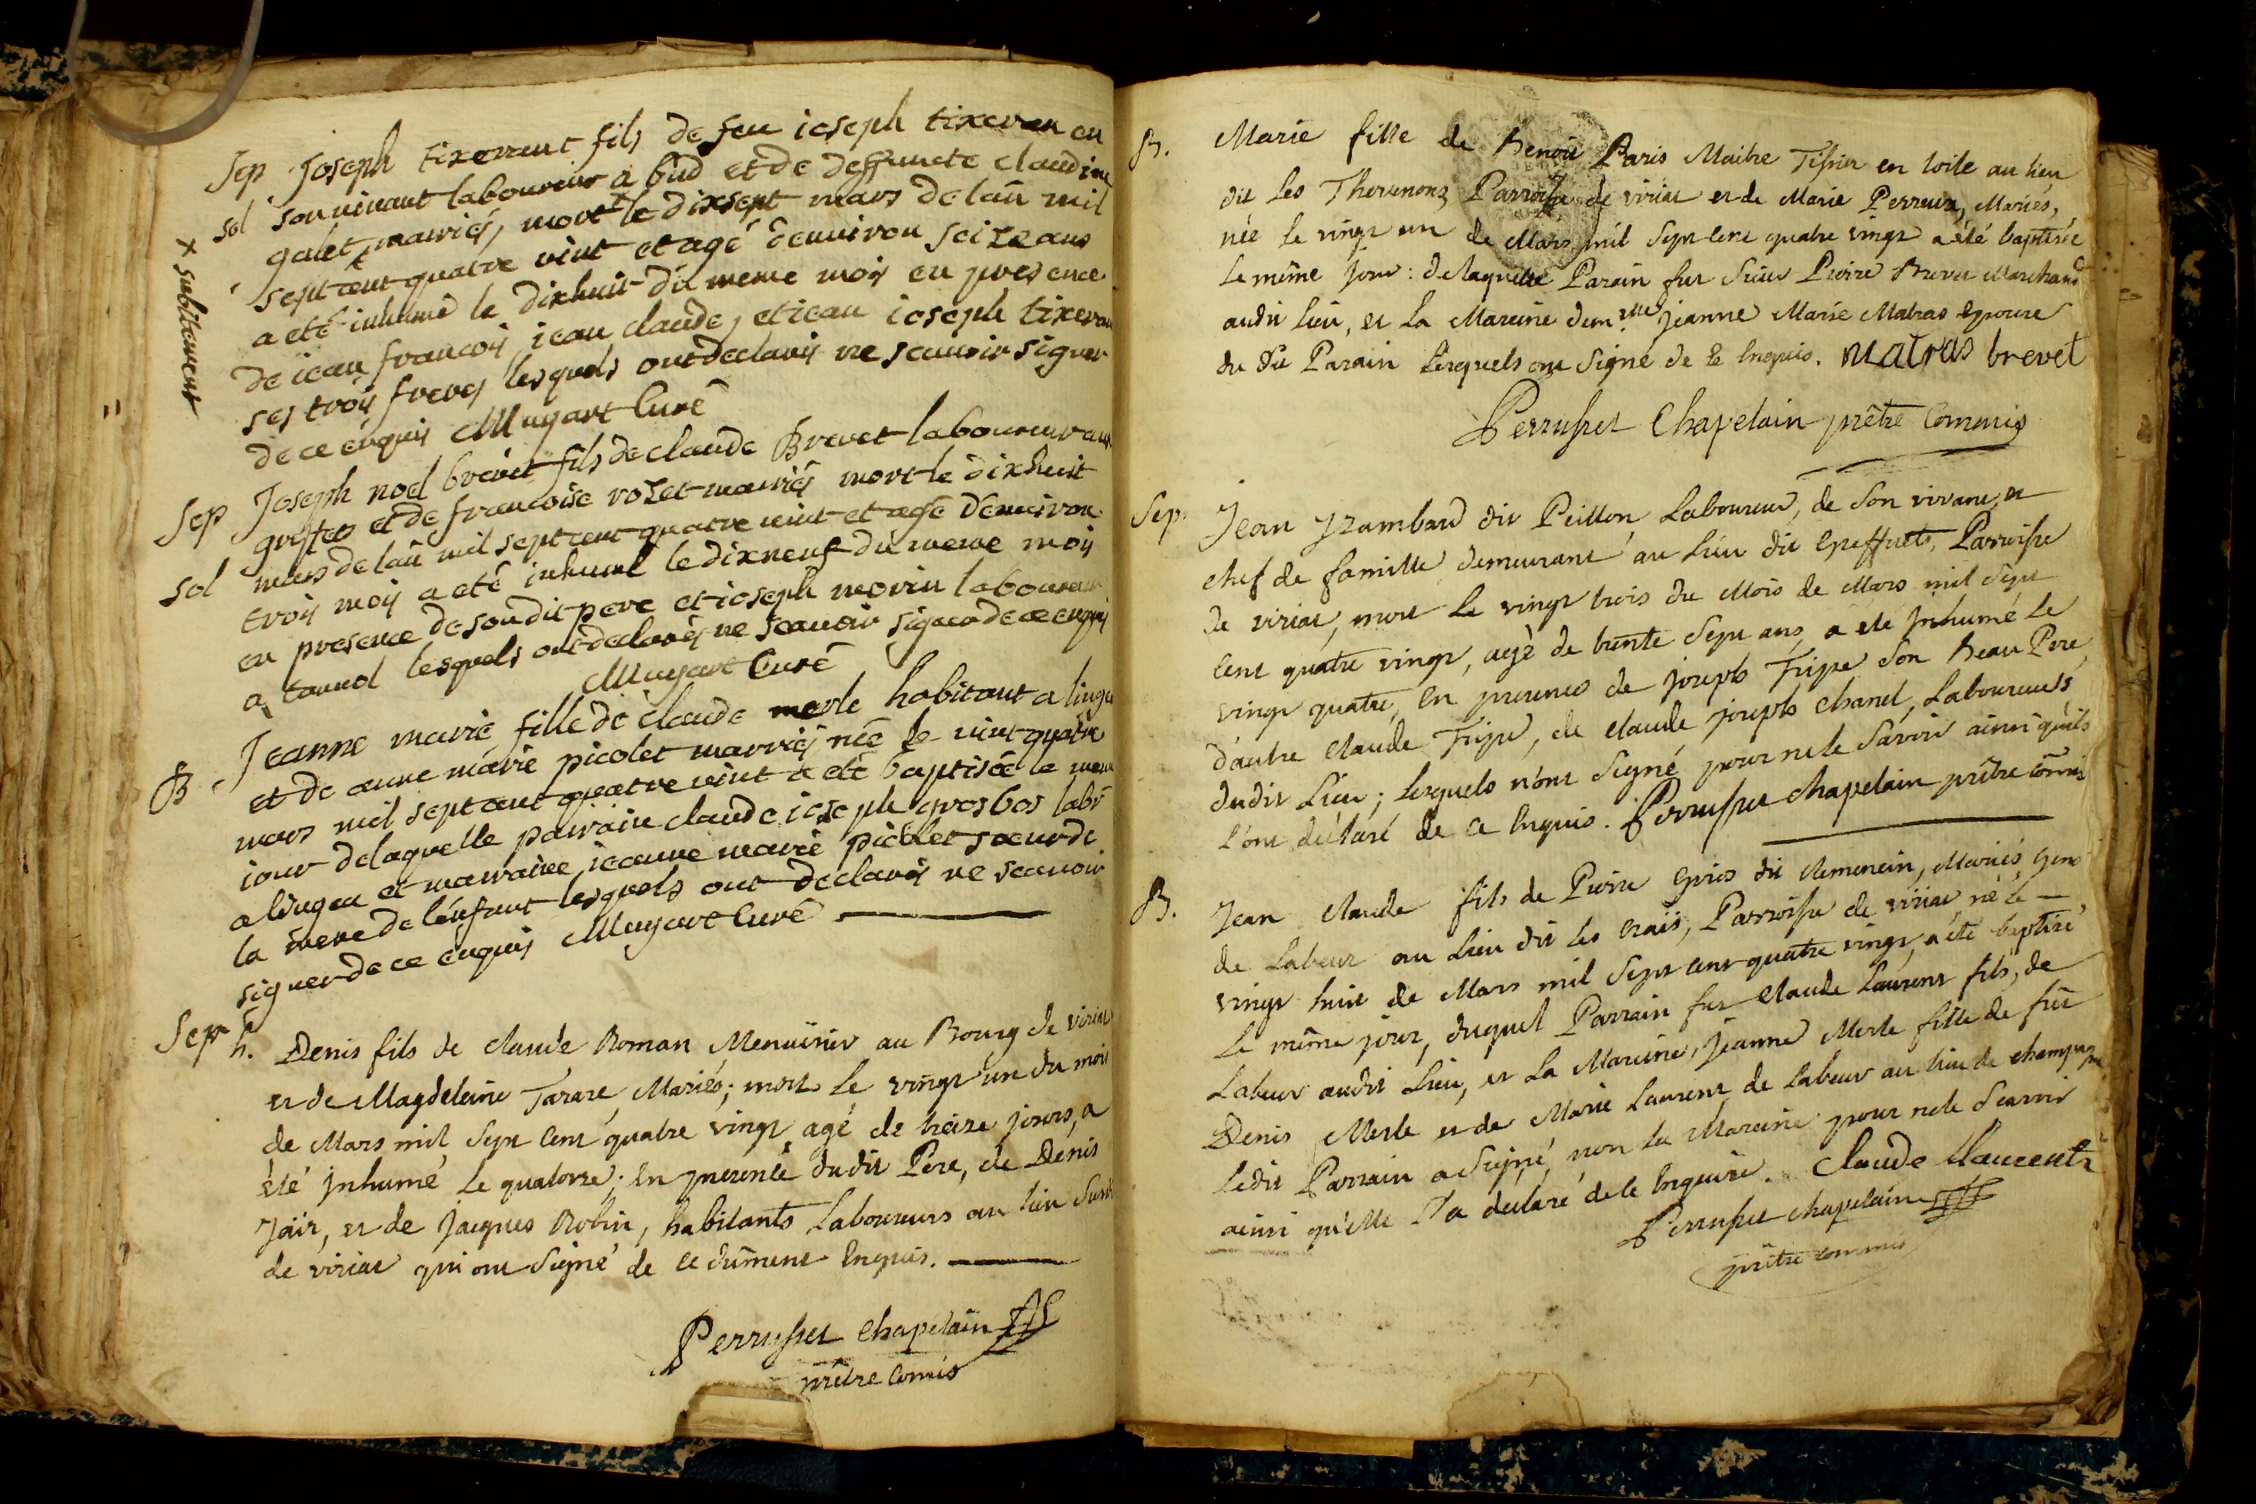 Sep Joseph tixerant fils de feu ioseph tixeran en
sol son vivant laboureur a bud et de deffuncte claudine
galet mariés, mort × le dixsept mars de lan mil
sept cent quatre vint et agé denviron seize ans
a eté inhumé le dixhuit du meme mois en presence
de iean francois iean claude, et iean ioseph tixeran
ses trois freres lesquels ont declarés ne scavoir signer
de ce enquis Mugart Curé
× subitement
Sep Joseph noel brevet fils de claude Brevet laboureur aux
et de francoise rozet mariés mort le dixhuit
sol mars de lan mil sept cent quatre vint et agé denviron
trois mois a eté inhumé le dixneuf du meme mois
en presence de son dit pere et ioseph morin laboureur
a lesquels ont declarés ne scavoir signer de ce enquis
Mugart Curé
B Jeanne marie fille de claude merle habitant a lingen
et de anne marie picolet mariés née le vint quatre
mars mil sept cent quatre vint a eté baptisée le meme
iour de laquelle parrain claude ioseph grosbos labr
a lingen et marraine ieanne marie picolet soeur de
la mere de lenfant lesquels ont declarés ne scavoir
signer de ce enquis Mugart Curé
Sep h. Denis fils de claude Roman Menuisier au Bourg de viriat
et de Magdeleine Tarare, Mariés; mort le vingt un du mois
de Mars mil Sept Cent quatre vingt, agé de treize jours, a
été jnhumé le quatorze; En presence dudit Pere, de Denis
Jair, et de Jacques Robin, habitants Laboureurs au lieu Susdit
de viriat qui ont Signé de ce dûment Enquis.
Perrusset Chapelain
prêtre comis
B. Marie fille de Benoit Paris Maitre Tissier en toile au lieu
dit les Thevenons Parroisse de viriat et de Marie Perreux, Mariés,
née le vingt un de Mars mil Sept Cent quatre vingt a été baptisée
le même jour: de laquelle Parain fut Sieur Pierre Brevet Marchand
audit lieu, et la Mareine demelle Jeanne Marie Matras Epouse
du dit Parain lesquels ont Signé de Ce Enquis. Matras brevet
Perrusset Chapelain prêtre Commis
Sep. Jean Yzambard dit Peillon Laboureur, de Son vivant, et
chef de famille, demeurant au lieu dit Parroisse
de viriat, mort le vingt trois du Mois de Mars mil Sept
Cent quatre vingt, agé de trente Sept ans, a été jnhumé le
vingt quatre, En presence de joseph Fripe Son Beau Pere
d'autre Claude Fripe, de claude joseph chanel, Laboureurs
dudit Lieu; lesquels n'ont Signé pour ne le Savoir ainsi qu'ils
l'ont déclaré de ce Enquis. Perrusset chapelain prêtre comis
B. Jean Claude fils de Pierre Gris dit Clemencin, Mariés, gens
de Labeur au Lieu dit les Crais, Parroisse de viriat né le
vingt huit de Mars mil Sept cent quatre vingt, a été baptisé
le même jour, duquel Parrain fut Claude Laurent fils, de
Labeur audit Lieu, et la Mareine, Jeanne Merle fille de feu
Denis Merle et de Marie Laurent de labeur au lieu de champagne
Ledit Parrain a Signé, non la Mareine pour ne le Scavoir
ainsi qu'elle l'a declaré de Ce Enquise. Claude Laurent
Perrusset chapelain
prêtre commis